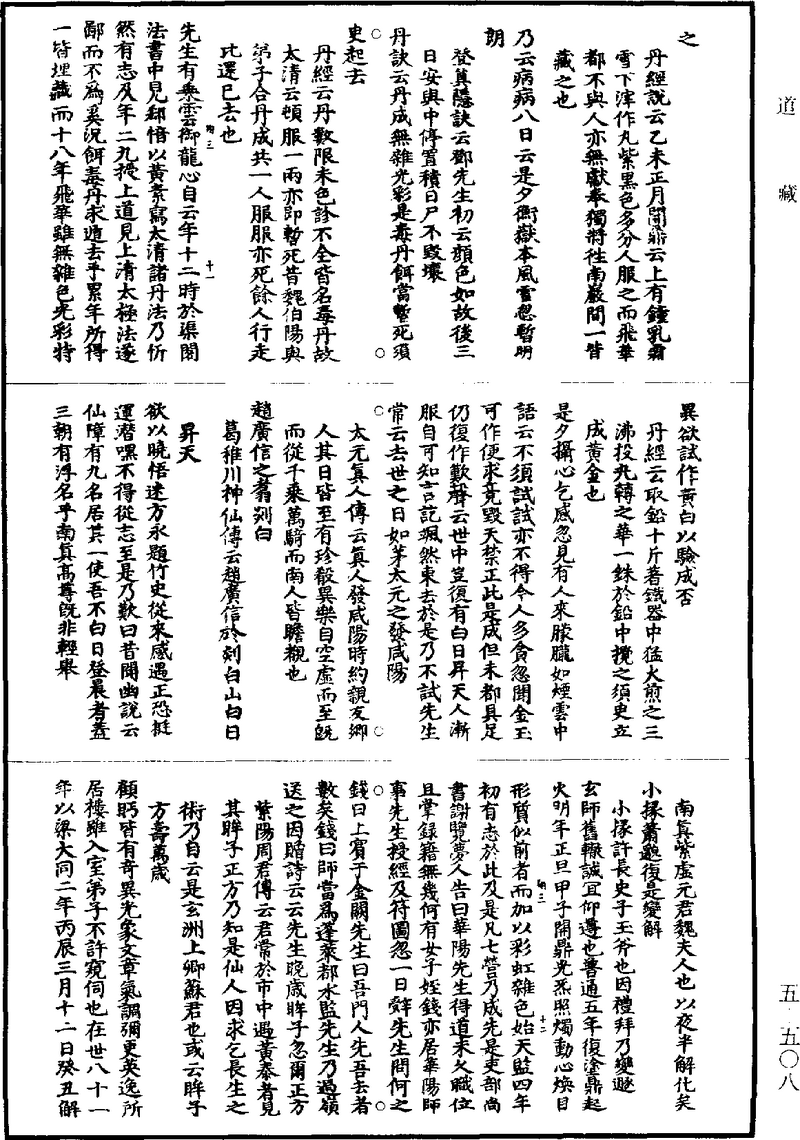 道藏
五·五〇八
之
丹經說云乙未正月開鼎云上有鍾乳霜
雪下滓作丸紫黑色多分人服之而飛華
都不與人亦無獻奉獨將往南巖間一皆
藏之也
乃云病病八日云是夕衡嶽本風雪忽暫明
朗
登真隱訣云鄧先生初云顏色如故後三
日安與中停置積日尸不毀壞
丹訣云丹成無雜光彩是毒丹餌當暫死須
史起去
丹經云丹數限未色診不全皆名毒丹故
太清云頓服一兩亦即暫死昔魏伯陽與
弟子合丹成共一人服服亦死餘人行走
比還已去也
先生有乘雲御龍心自云年十二時於渠閣
法書中見郄愔以黃素寫太清諸丹法乃忻
然有志及年二九授上道見上清太極法遂
鄙而不為奚況餌毒丹求遁去乎累年所得
一皆埋藏而十八年飛華雖無雜色光彩特
陶三
十一
異欲試作黃白以驗成否
丹經云取鉛十斤著鐵器中猛火煎之三
沸投九轉之華一銖於鉛中攪之須史立
成黃金也
是夕攝心乞感忽見有人來朦朧如煙雲中
語云不須試試亦不得令人多貪忽聞金玉
可作便求競毀天禁正此是成但未都具足
仍復作歎聲云世中豈復有白日昇天人漸
服自可知言訖颯然東去於是乃不試先生
常云去世之日如茅太元之發咸陽
太元真人傳云真人發咸陽時約親友鄉
人其日皆至有珍殽異樂自空虛而至既
而從千乘萬騎而南人皆瞻覩也
趙廣信之翥剡白
葛稚川神仙傳云趙廣信於剡白山白日
昇天
欲以曉悟迷方永題竹史從來感遇正恐挺
運潛嘿不得從志至是乃歎曰昔聞幽說云
仙障有九名居其一使吾不白日登晨者蓋
三朝有浮名乎南真高尊既非輕舉
南真紫虛元君魏夫人也以夜半解化矣
小掾蕭邈復是變解
小掾許長史子玉斧也因禮拜乃變遯
玄師舊轍誠宜仰遵也普通五年復塗鼎起
火明年正旦甲子開鼎光炁照燭動心煥目
形質似前者而加以彩虹雜色始天監四年
初有志於此及是凡七營乃成先是吏部尚
書謝覽夢人告曰華陽先生得道未久職位
且掌錄籍無幾何有女子姓錢亦居華陽師
事先生授經及符圖忽一日辭先生問何之
錢曰上賓于金闕先生曰吾門人先吾去者
數矣錢曰師當為蓬萊都水監先生乃過嶺
送之因贈詩云云先生晚歲眸子忽爾正方
紫陽周君傳云君常於市中遇黃泰者見
其眸子正方乃知是仙人因求乞長生之
術乃自云是玄洲上卿蘇君也或云眸子
方壽萬歲
顧眄皆有奇異光象文章氣調彌更英逸所
居樓雖入室弟子不許窺伺也在世八十一
年以梁大同二年丙辰三月十二日癸丑解
陶三
十二